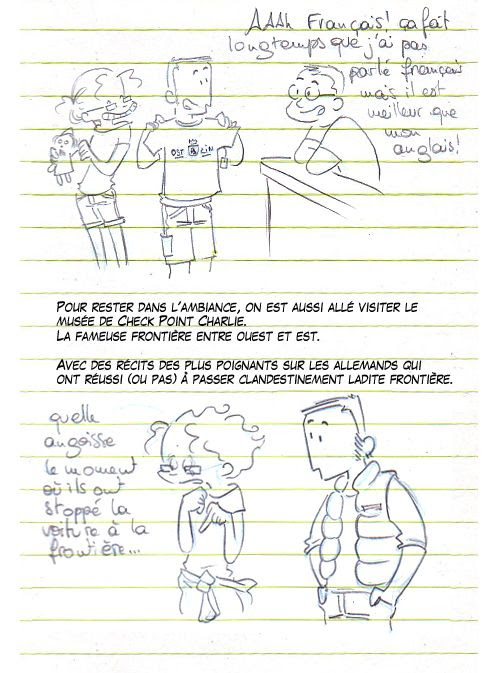 AAAh Français! ça fait
longtemps que j'ai pas
parlé français
mais il est
meilleur que
mon
anglais!
POUR RESTER DANS L'AMBIANCE, ON EST AUSSI ALLÉ VISITER LE
MUSÉE DE CHECK POINT CHARLIE.
LA FAMEUSE FRONTIÈRE ENTRE OUEST ET EST.
AVEC DES RÉCITS DES PLUS POIGNANTS SUR LES ALLEMANDS QUI
ONT RÉUSSI (OU PAS) À PASSER CLANDESTINEMENT LADITE FRONTIÈRE.
quelle
angoisse
le moment
où ils ont
stoppé la
voiture à la
frontière...